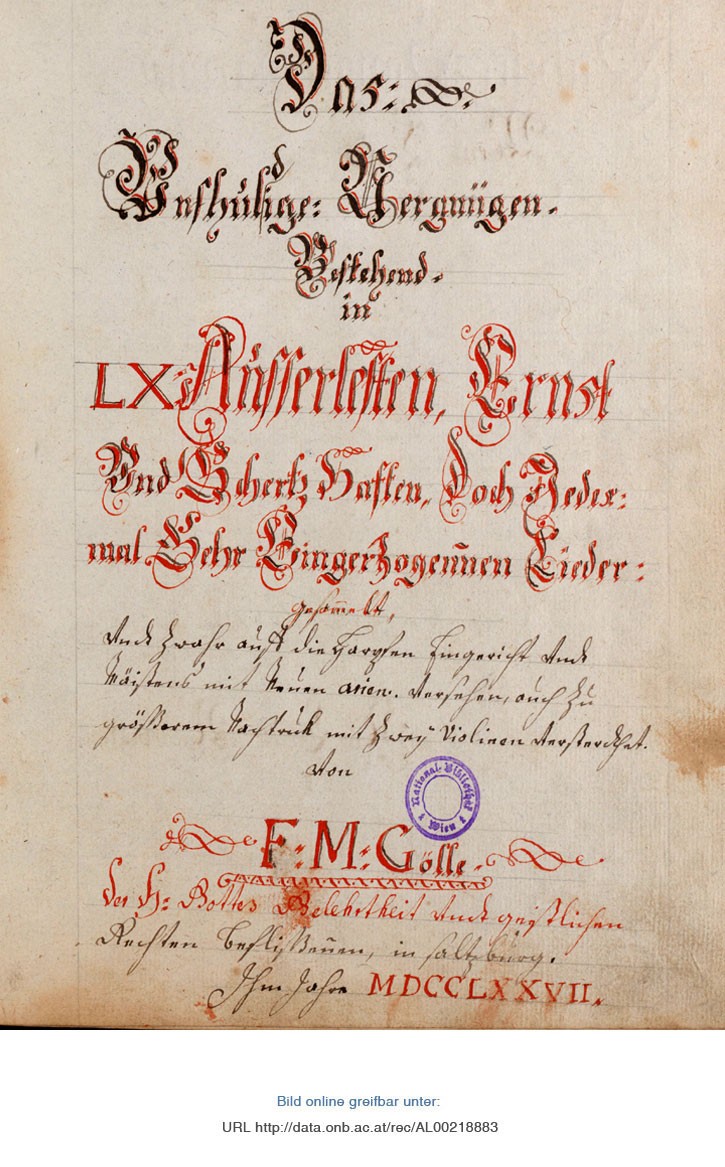 Das:
Unshuldige: Vergnügen.
Bestehend.
in
LX Aüsserlessten, Ernst
Und Schertz Hafften, Doch Jeder:
mal Sehr Eingerzogennen Lieder:
gesammelt,
Undt Zwahr auff die Harpfen Eingericht Undt
Mäistens mit Neuen arien. Versehen, auch Zu
größerem Nachtruk mit Zwey Violinen Versterckhet.
Von
National-Bibliothek
Wien
F: M: Gölle.
Der H: Gottes Gelehrtheit Undt geistlichen
Rechten beflißenen, in saltzburg.
Ihm Jahre MDCCLXXVII.
Bild online greifbar unter:
URL http://data.onb.ac.at/rec/AL00218883